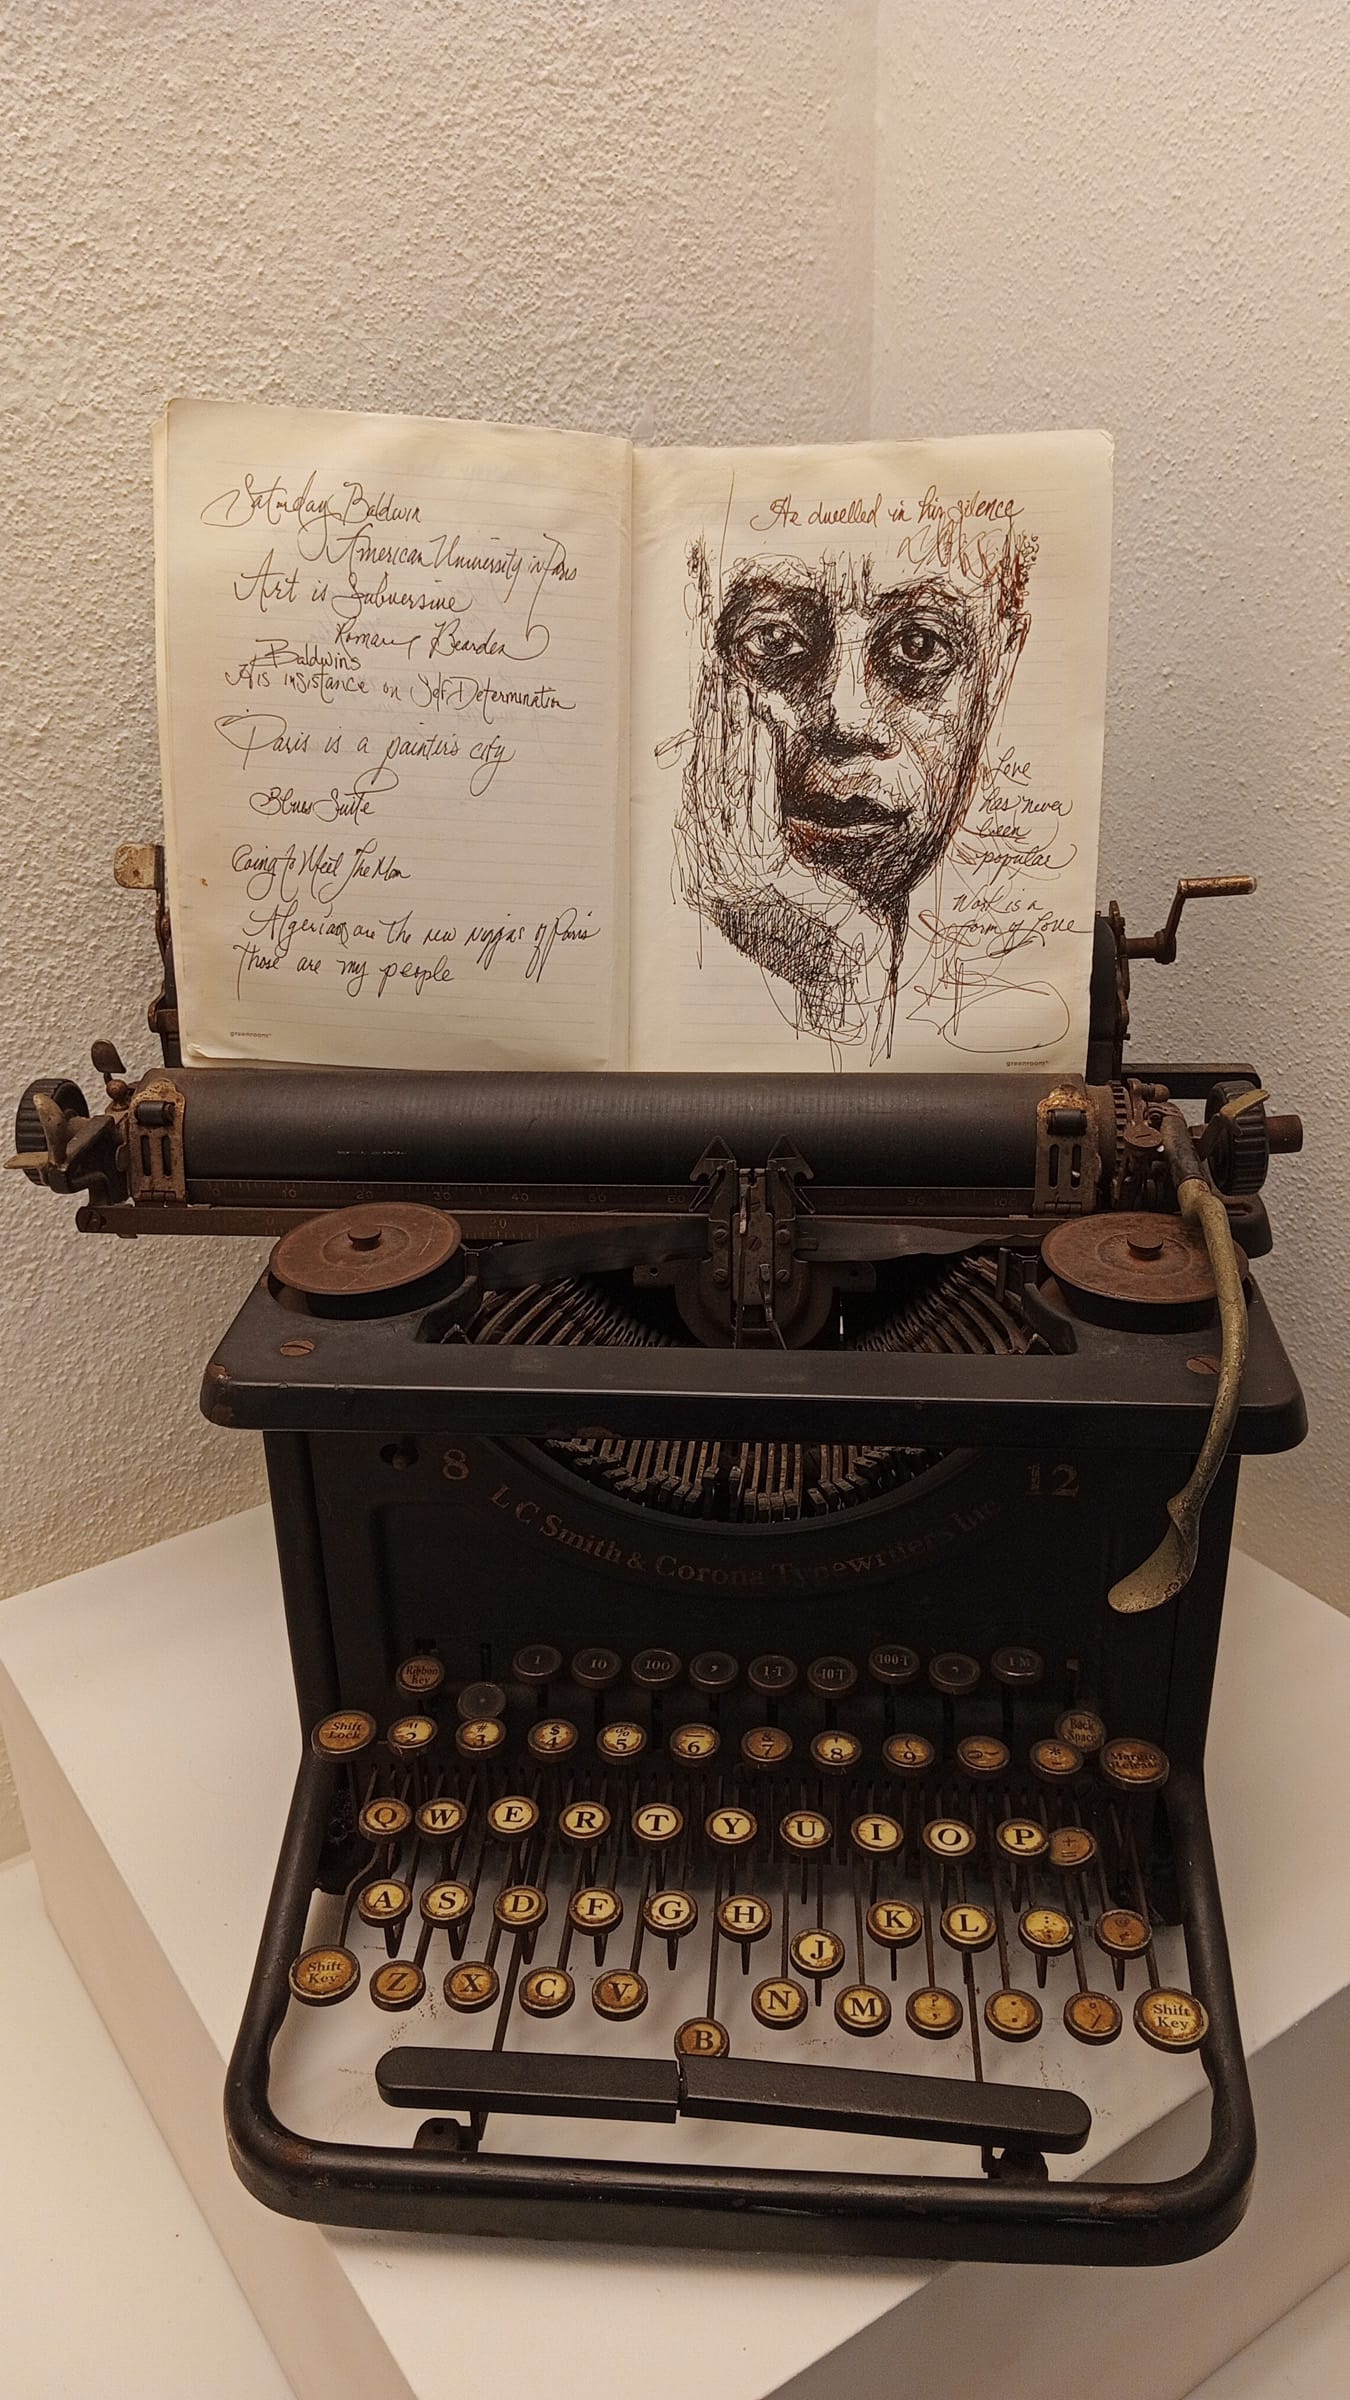 Saturday Baldwin
American University in Paris
Art is Subversive
Romare Bearden
Baldwins
His insistance on Self Determination
Paris is a painter's city
Blues Suite
Going to Meet The Man
Algerians are the new niggas of Paris
Those are my people
greenroom
He dwelled in his silence
Love
has never
been
popular
Work is a
form of Love
greenroom
0 10 20 30 40 50 60 90 100
0 20
8 12
L C Smith & Corona Typewriters Inc
1 10 100 , 1-T 10-T 100-T , 1-M
Ribbon Key .
Shift Lock " 2 # 3 $ 4 % 5 _ 6 & 7 ' 8 ( 9 ) * - Back Space Margin Release
Q W E R T Y U I O P + =
A S D F G H J K L : ; @
Shift Key Z X C V B N M ? , . / Shift Key